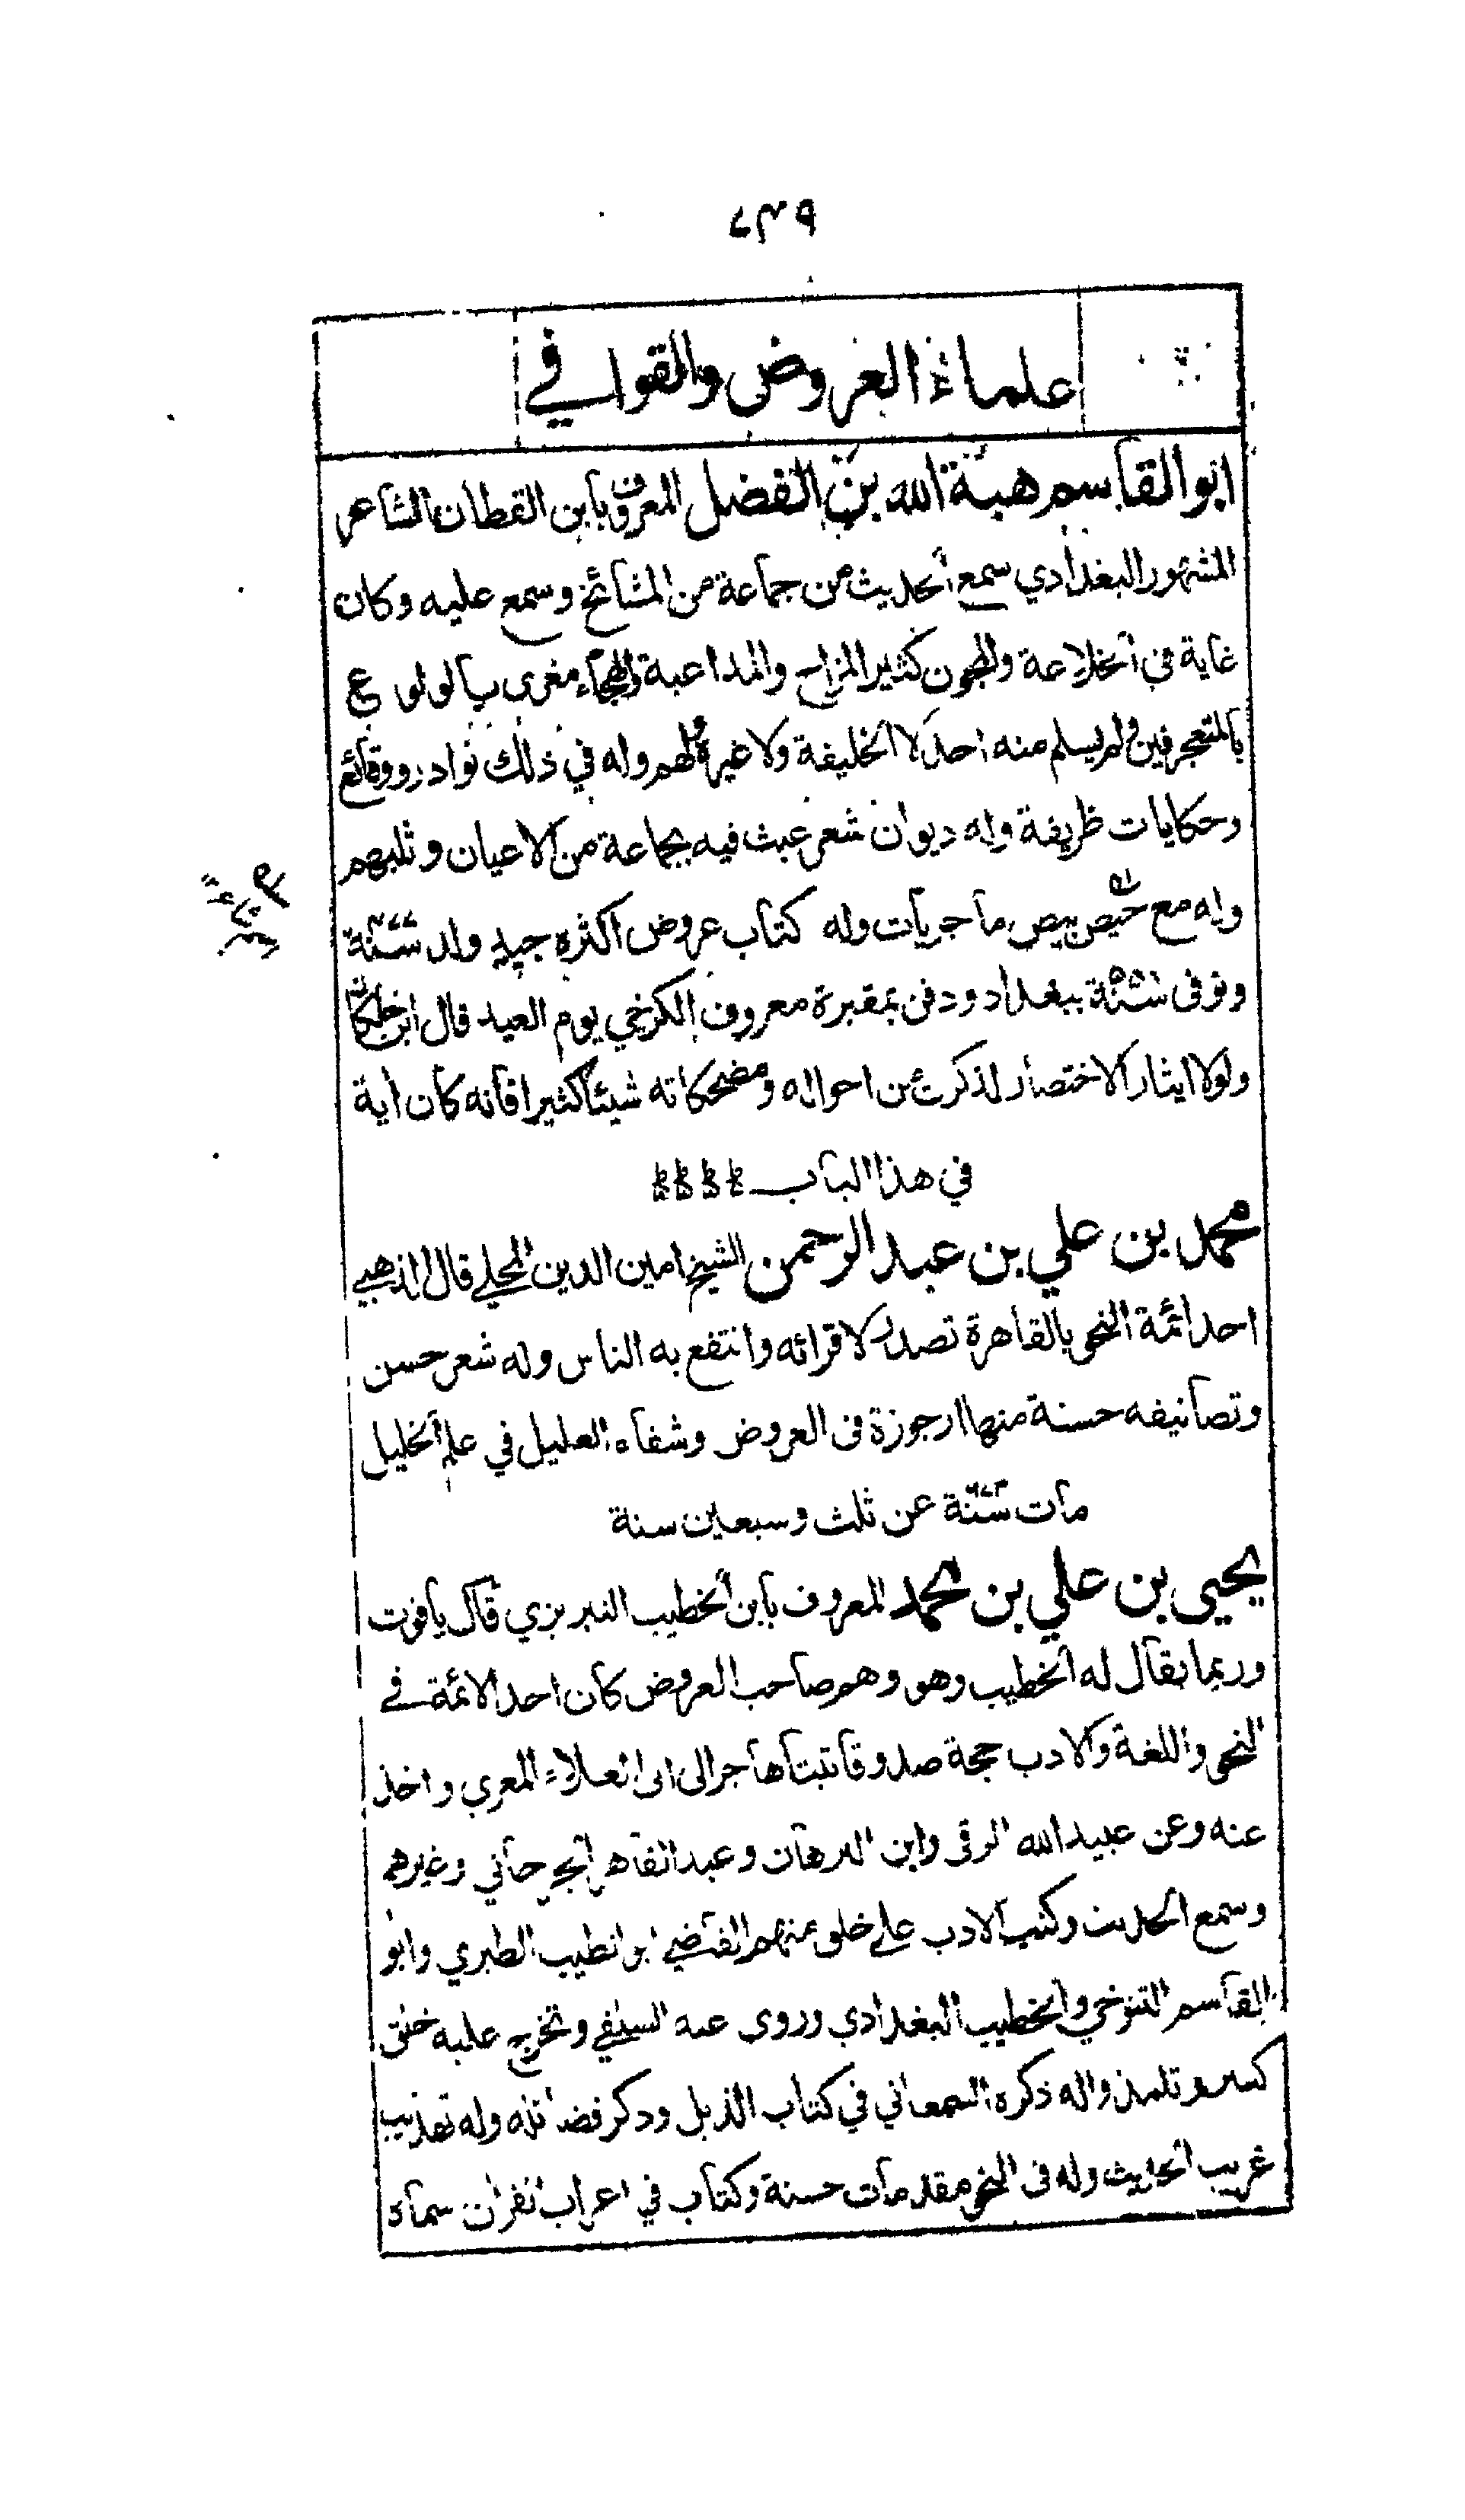 علماء العروض والقوافي
ابو القاسم هبة الله بن الفضل المعروف بابن القطان الشاعر
المشهور البغدادي سمع الحديث من جماعة من المشائخ وسمع عليه وكان
غاية في الخلاعة والمجون كثير المزاح والمداعبة والهجاء مغرى بالولوع
بالمتعجرفين ولم يسلم منه احد لا الخليفة ولا غيره وله في ذلك نوادر ووقائع
وحكايات ظريفة وله ديوان شعر عبث فيه بجماعة من الاعيان وثلبهم
وله مع حيص بيص ماجريات وله كتاب عروض اكثره جيد ولد سنة
وتوفى سنة ببغداد ودفن بمقبرة معروف الكرخي يوم العيد قال ابن خلكان
ولولا ايثار الاختصار لذكرت من احواله ومضحكاته شيئا كثيرا فانه كان اية
في هذا الباب
محمد بن علي بن عبد الرحمن الشيخ امين الدين المحلي قال الذهبي
احد ائمة النحو بالقاهرة تصدر لاقرائه وانتفع به الناس وله شعر حسن
وتصانيفه حسنة منها ارجوزة في العروض وشفاء العليل في علم الخليل
مات سنة ٦٧٣ عن ثلث وسبعين سنة
يحيى بن علي بن محمد المعروف بابن الخطيب التبريزي قال ياقوت
وربما يقال له الخطيب وهو وهم صاحب العروض كان احد الائمة في
النحو واللغة والادب حجة صدوقا ثبتا هاجر الى ابي العلاء المعري واخذ
عنه وعن عبيد الله الرقى وابن الدهان وعبد القاهر الجرجاني وغيرهم
وسمع الحديث وكتب الادب على خلق منهم القاضي ابو الطيب الطبري وابو
القاسم التنوخي والخطيب البغدادي وروى عنه السلفي وتخرج عليه خلق
كثير وتلمذوا له ذكره السمعاني في كتاب الذيل وذكر فضائله وله تهذيب
غريب الحديث وله في النحو مقدمات حسنة وكتاب في اعراب القران سماه